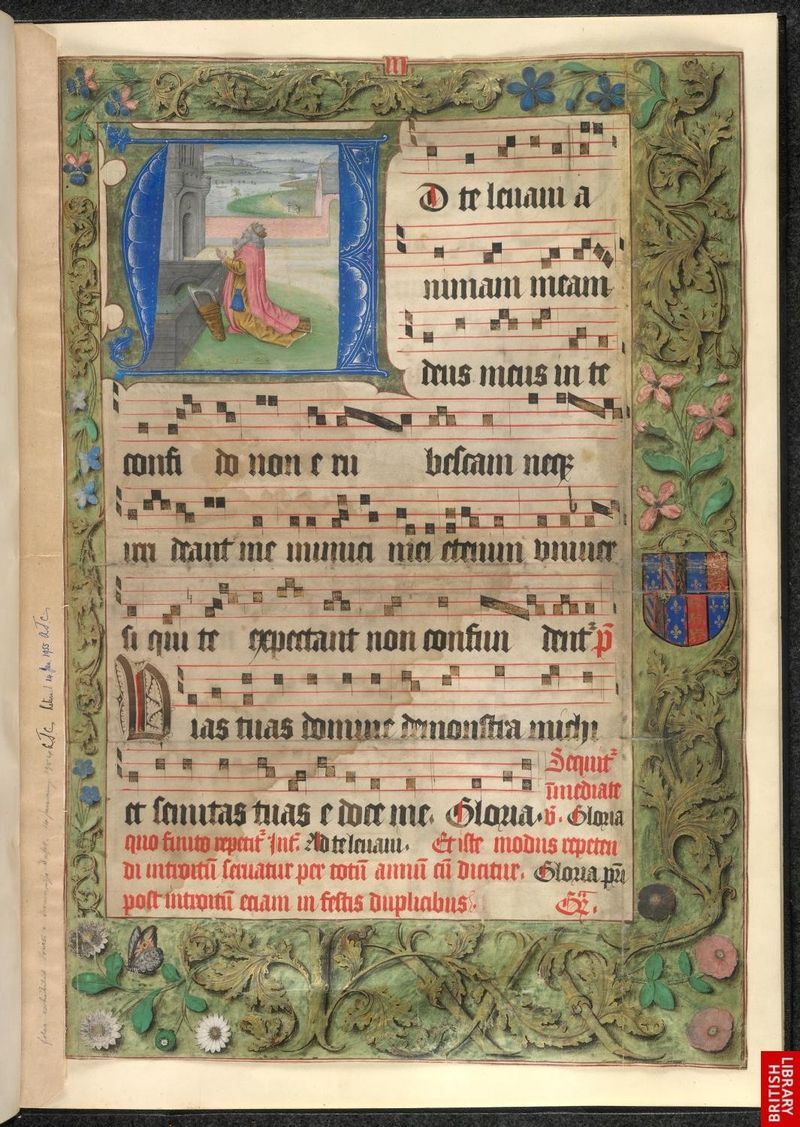 m
AD te levavi a
nimam meam
deus meus in te
confi do non e ru bescam neqꝫ
irri deant me inimici mei etenim univer
si qui te expectant non confun dent' p̄
Uias tuas domine demonstra michi
et semitas tuas e doce me. Gloria. v̄. Gloria
Sequit'
īmediate
quo finito repetit' Int'. Ad te levavi. Et iste modus repeten
di introitū servatur per totū annū cū dicitur. Gloria pr̄i
post introitū eciam in festis duplicibus.
BRITISH
LIBRARY